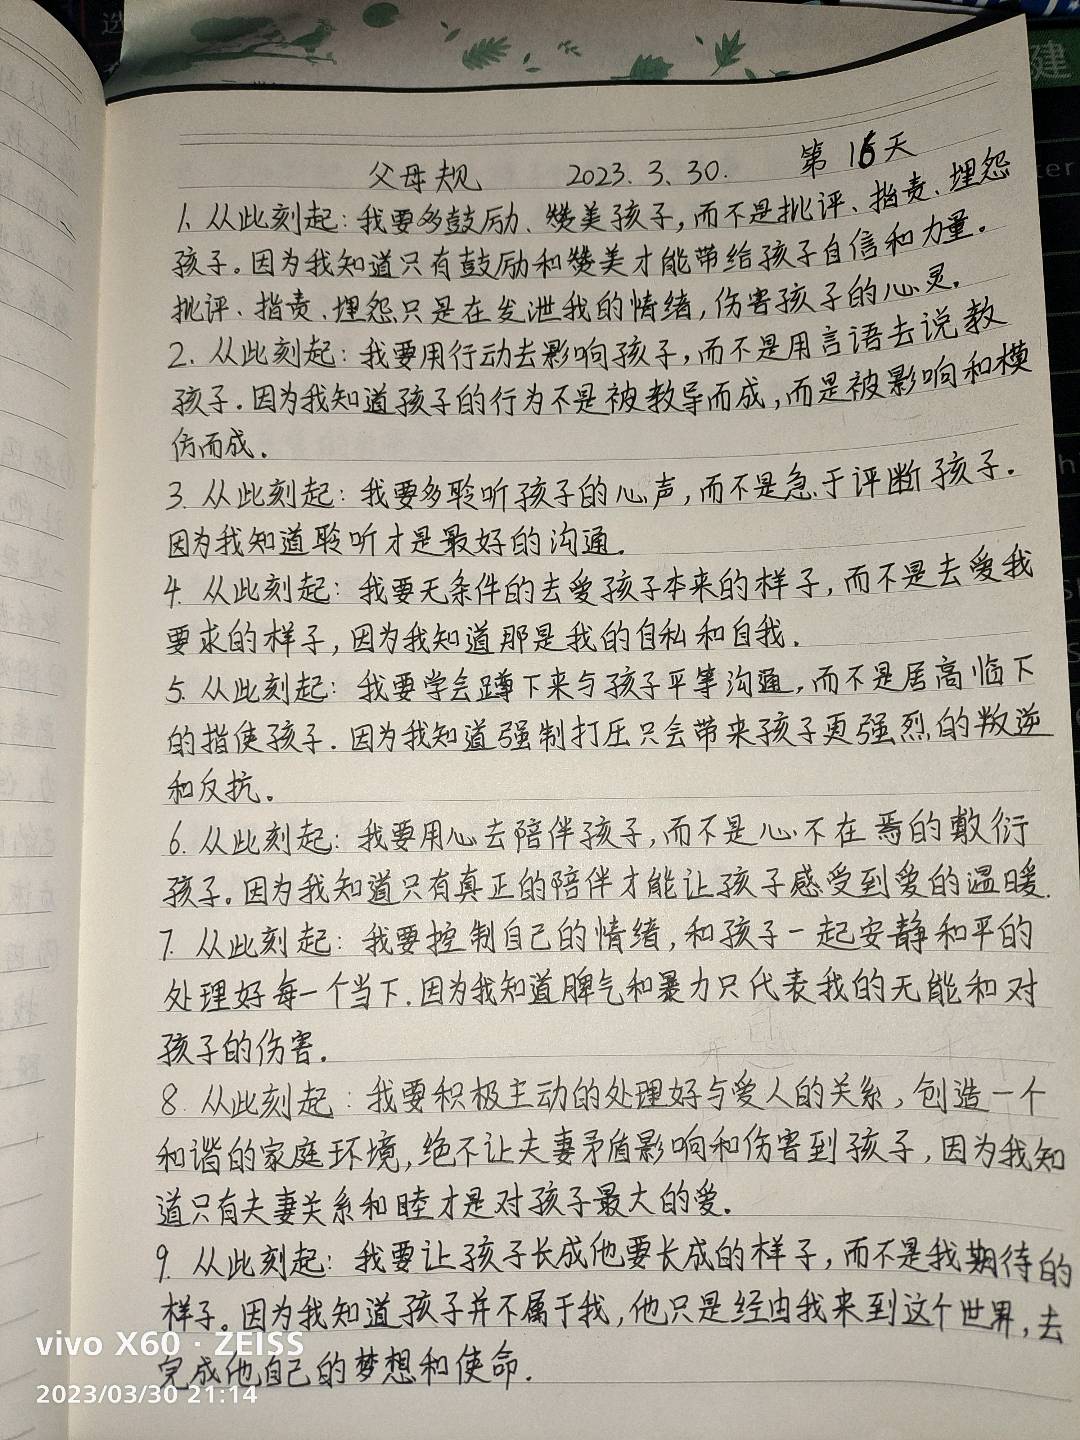 父母规 2023.3.30. 第16天
1. 从此刻起：我要多鼓励、赞美孩子，而不是批评、指责、埋怨
孩子。因为我知道只有鼓励和赞美才能带给孩子自信和力量。
批评、指责、埋怨只是在发泄我的情绪，伤害孩子的心灵。
2. 从此刻起：我要用行动去影响孩子，而不是用言语去说教
孩子.因为我知道孩子的行为不是被教导而成，而是被影响和模
仿而成.
3. 从此刻起：我要多聆听孩子的心声，而不是急于评断孩子.
因为我知道聆听才是最好的沟通.
4. 从此刻起：我要无条件的去爱孩子本来的样子，而不是去爱我
要求的样子，因为我知道那是我的自私和自我.
5. 从此刻起：我要学会蹲下来与孩子平等沟通，而不是居高临下
的指使孩子.因为我知道强制打压只会带来孩子更强烈的叛逆
和反抗.
6. 从此刻起：我要用心去陪伴孩子，而不是心不在焉的敷衍
孩子。因为我知道只有真正的陪伴才能让孩子感受到爱的温暖.
7. 从此刻起：我要控制自己的情绪，和孩子一起安静和平的
处理好每一个当下.因为我知道脾气和暴力只代表我的无能和对
孩子的伤害.
8. 从此刻起：我要积极主动的处理好与爱人的关系，创造一个
和谐的家庭环境，绝不让夫妻矛盾影响和伤害到孩子，因为我知
道只有夫妻关系和睦才是对孩子最大的爱.
9. 从此刻起：我要让孩子长成他要长成的样子，而不是我期待的
样子。因为我知道孩子并不属于我，他只是经由我来到这个世界，去
完成他自己的梦想和使命.
vivo X60 · ZEISS
2023/03/30 21:14
建